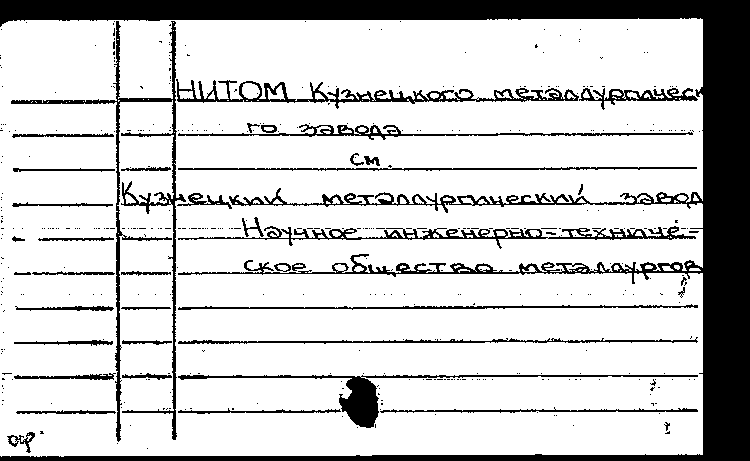 НИТОМ Кузнецкого металлургическ
го завода
см.
Кузнецкий металлургический завод
Научное инженерно-техниче-
ское общество металлургов